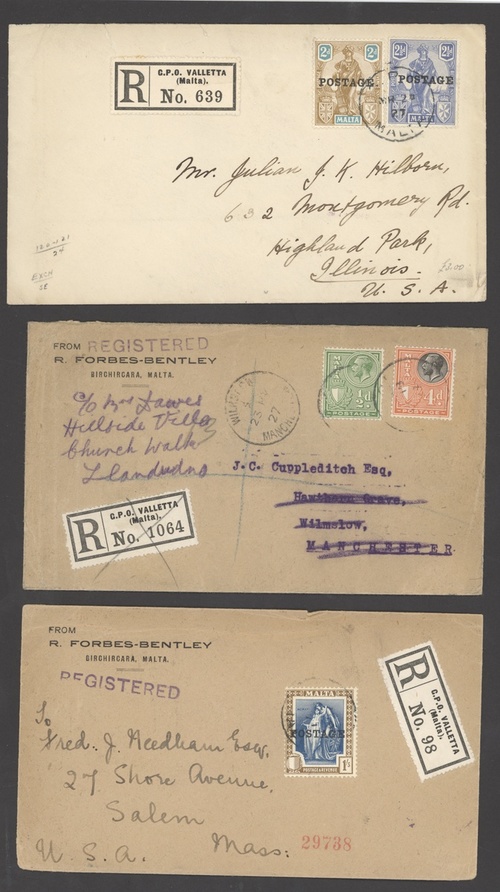 R
G.P.O. VALLETTA
(Malta).
No. 639
2d 2d
POSTAGE
MALTA
2½ 2½
POSTAGE
27
MALTA
Mr. Julian J. K. Hilborn,
632 Montgomery Rd.
Highland Park,
Illinois.
U. S. A.
EXCH
£200
FROM REGISTERED
R. FORBES-BENTLEY
BIRCHIRCARA, MALTA.
c/o Mrs Lawes
Hillside Villa
Church Walk
Llandudno
23
27
MALTA
½d
POSTAGE
MALTA
4d
POSTAGE
J.C. Cuppleditch Esq,
Hawthorn Grove,
Wilmslow,
MANCHESTER
R
G.P.O. VALLETTA
(Malta).
No. 1064
FROM
R. FORBES-BENTLEY
BIRCHIRCARA, MALTA.
REGISTERED
MALTA
POSTAGE
POSTAGE & REVENUE
1/-
R
G.P.O. VALLETTA
(Malta).
No. 98
To
Fred. J. Needham Esq.
27 Shore Avenue,
Salem
Mass:
U. S. A.
29738